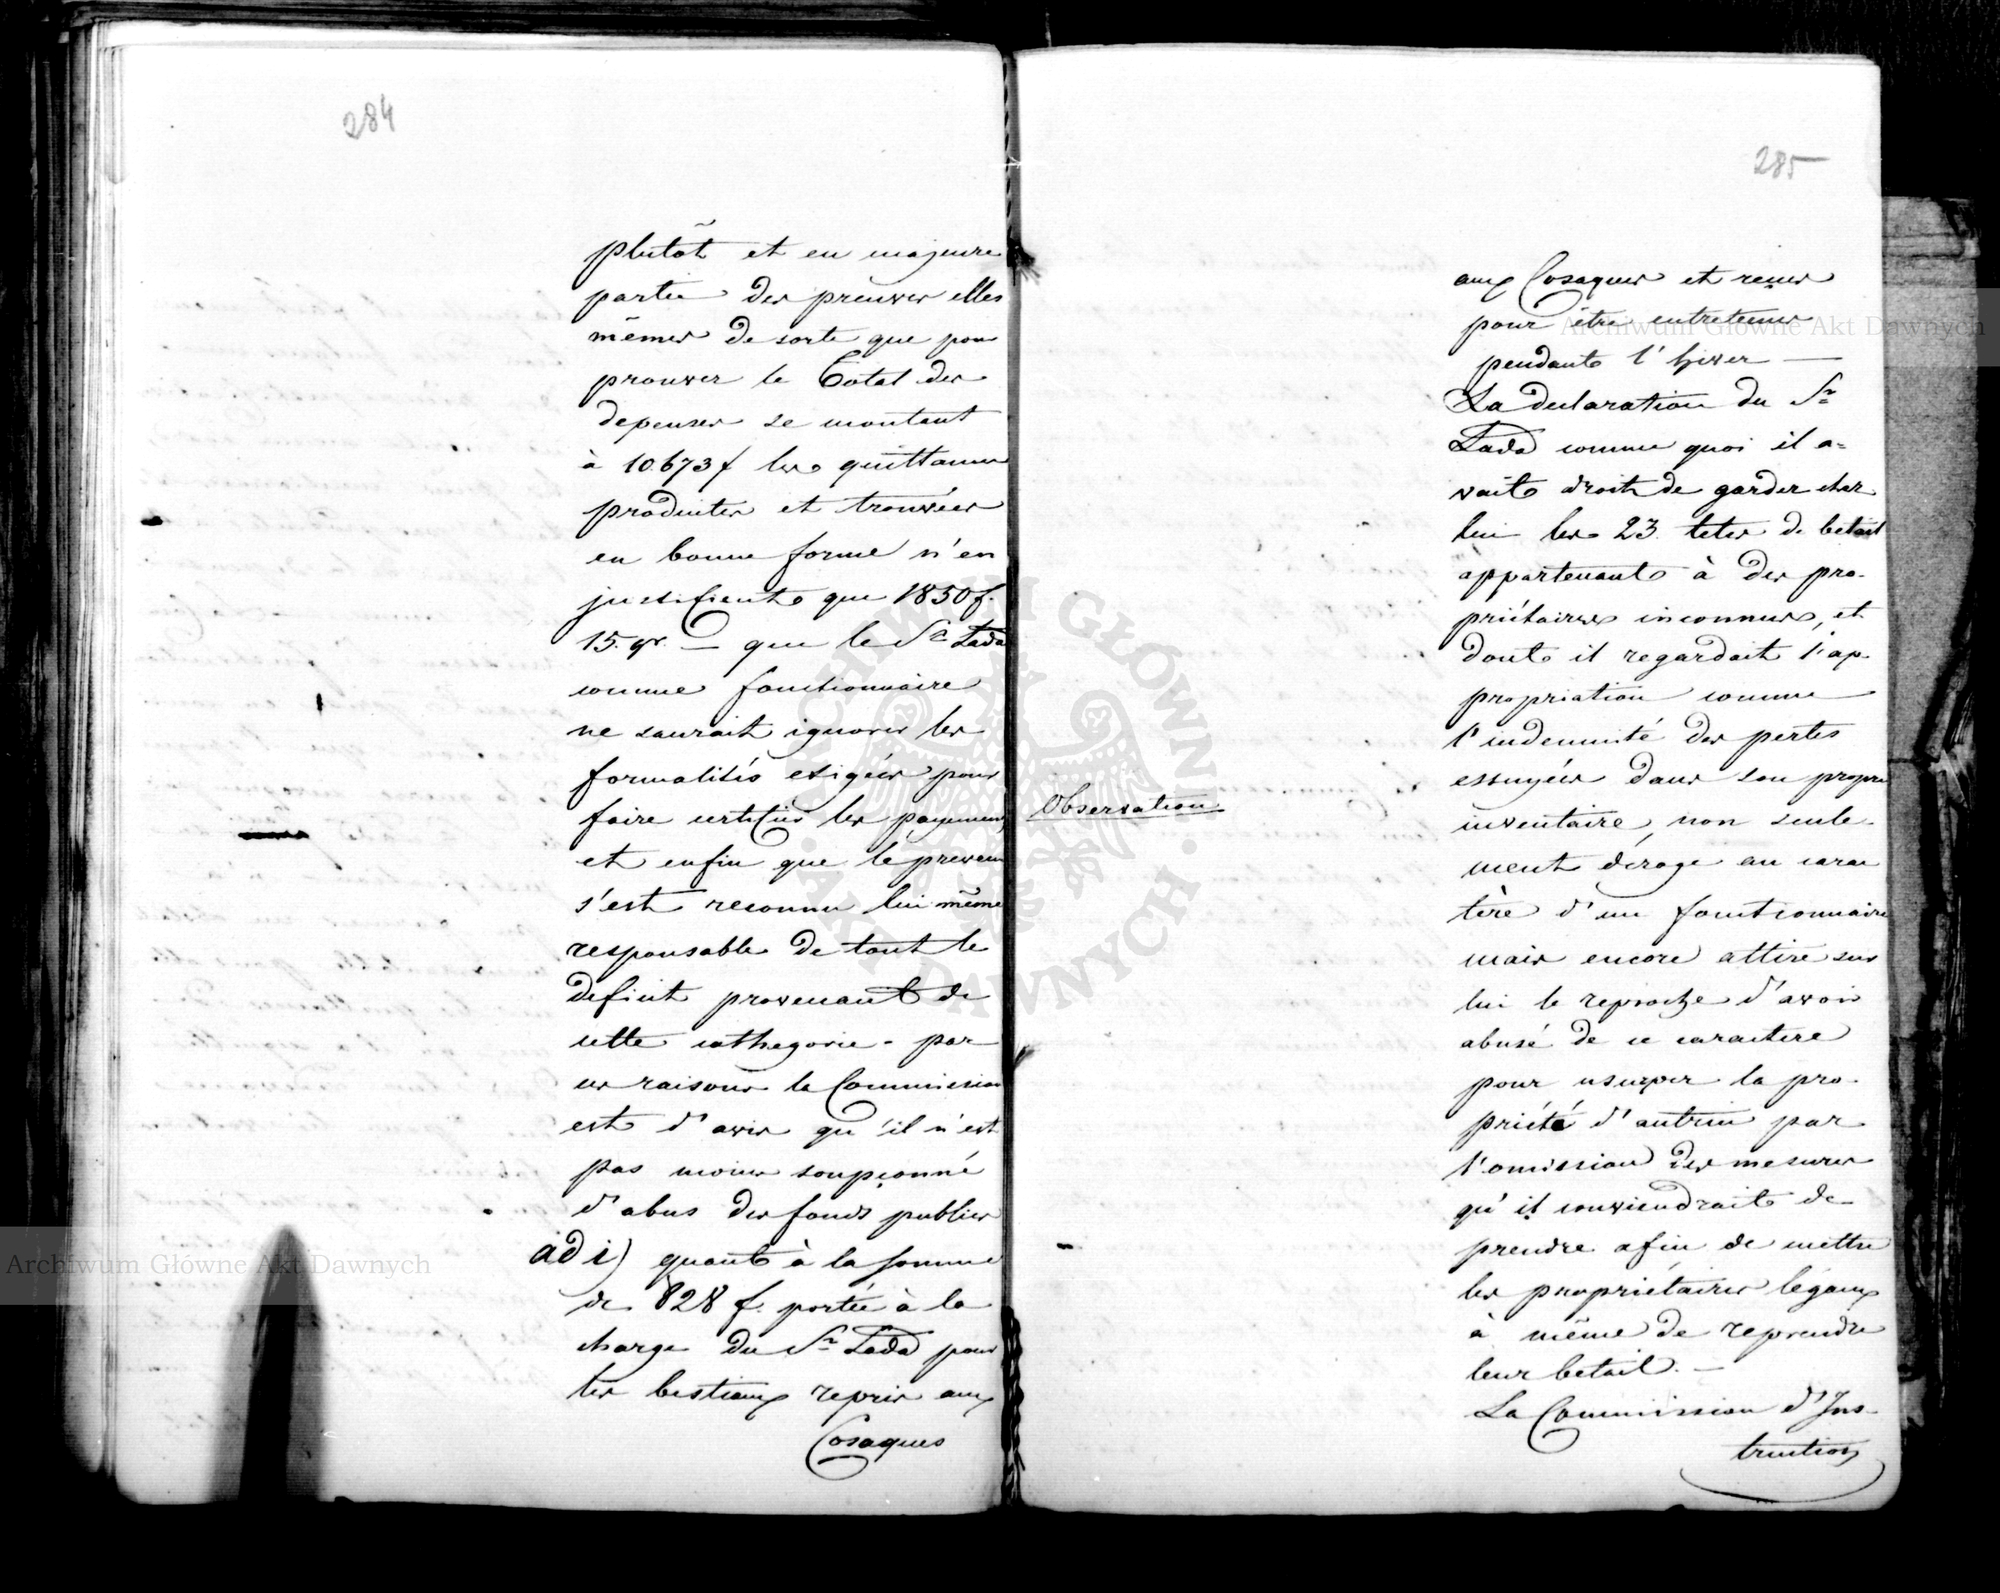 284
plutôt et en majeure
partie des preuves elles
mêmes de sorte que pour
prouver le Total des
depenses se montant
à 10.673 f les quittances
produites et trouvées
en bonne forme n'en
justifient que 1850 f.
15. gr. — que le Sr Lada
comme fonctionnaire
ne saurait ignorer les
formalités exigées pour
faire certifier les payemens
et enfin que le prevenu
s'est reconnu lui même
responsable de tout le
deficit provenant de
cette cathegorie - par
ces raisons la Commission
est d'avis qu'il n'est
pas moins soupçonné
d'abus des fonds publics
ad i) quant à la somme
de 828 f. portée à la
charge du Sr Lada pour
les bestiaux repris aux
Cosaques
285
aux Cosaques et remis
pour être entretenus
pendant l'hiver —
La declaration du Sr
Lada comme quoi il a=
vait droit de garder chez
lui les 23 tetes de betail
appartenant à des pro-
priétaires inconnus, et
dont il regardait l'ap-
propriation comme
l'indemnité des pertes
essuyées dans son propre
Observation
inventaire, non seule-
ment déroge au carac
tère d'un fonctionnaire
mais encore attire sur
lui le reproche d'avoir
abusé de ce caractere
pour usurper la pro-
priété d'autrui par
l'omission des mesures
qu'il conviendrait de
prendre afin de mettre
les propriétaires légaux
à même de reprendre
leur betail. —
La Commission d'Ins-
truction
Archiwum Główne Akt Dawnych
Archiwum Główne Akt Dawnych
ARCHIWUM GŁÓWNE · AKT DAWNYCH ·